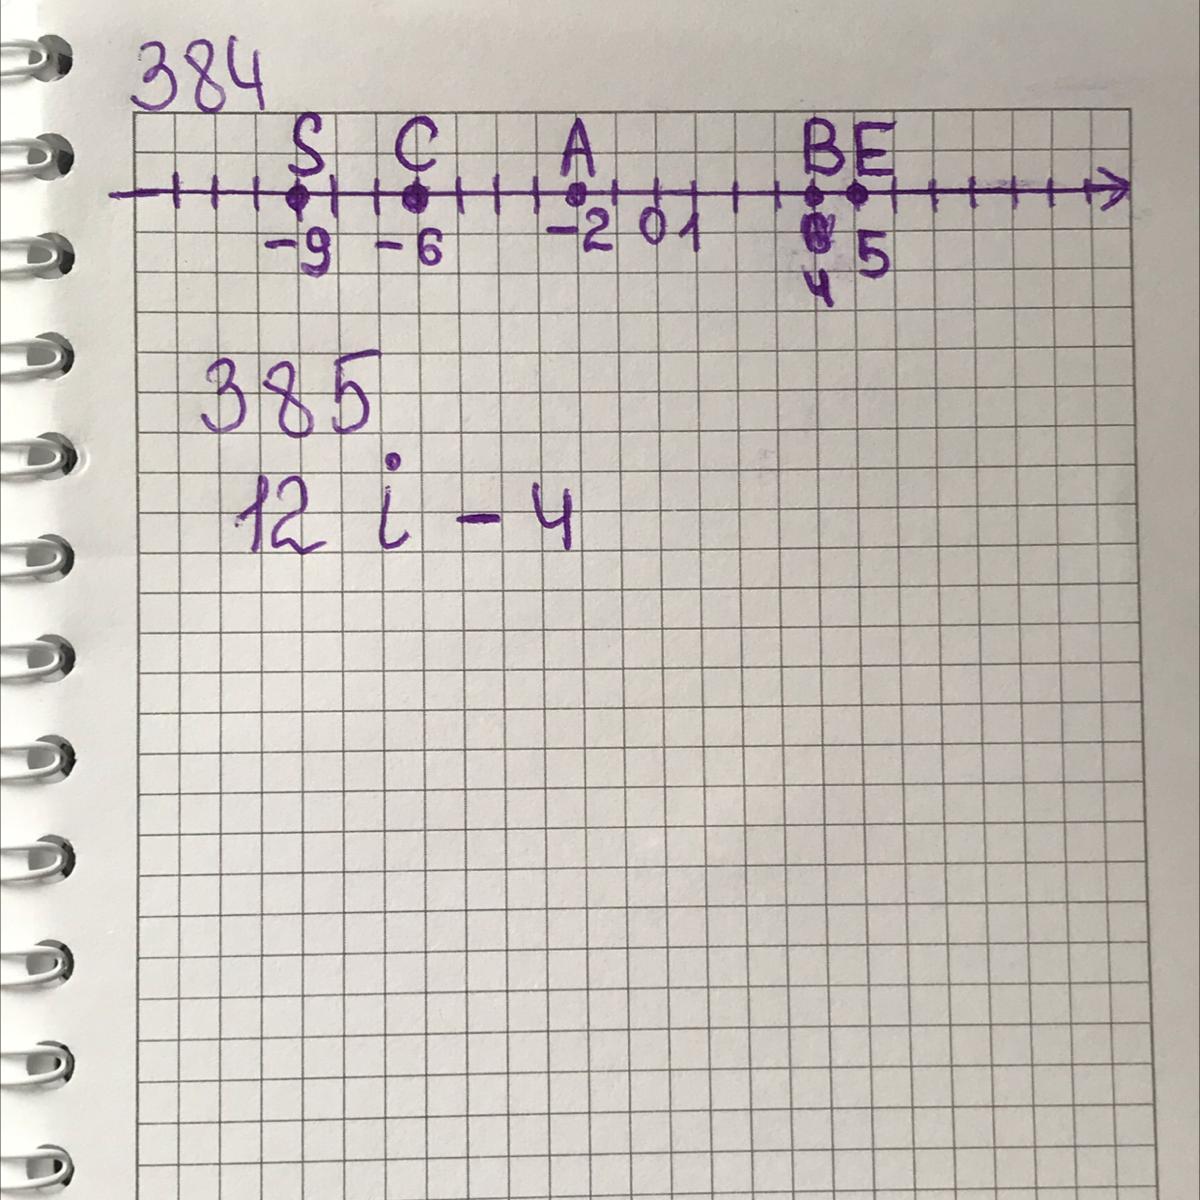 384
S C A B E
-9 -6 -2 0 1 5
4
385
12 i - 4